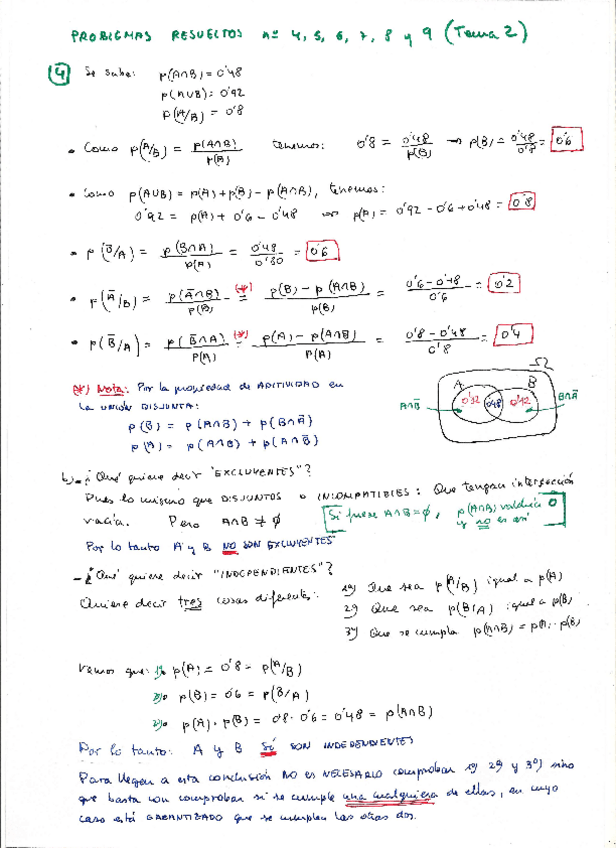 PROBLEMAS RESUELTOS Nº 4, 5, 6, 7, 8 y 9 (Tema 2)
4 Se sabe: p(A∩B) = 0'48
p(A∪B) = 0'92
p(A/B) = 0'8
• Como p(A/B) = p(A∩B)/p(B) tenemos: 0'8 = 0'48/p(B) ⇒ p(B) = 0'48/0'8 = 0'6
• Como p(A∪B) = p(A) + p(B) - p(A∩B), tenemos:
0'92 = p(A) + 0'6 - 0'48 ⇒ p(A) = 0'92 - 0'6 + 0'48 = 0'8
• p(B/A) = p(B∩A)/p(A) = 0'48/0'80 = 0'6
• p(A̅/B) = p(A̅∩B)/p(B) (*)= p(B) - p(A∩B)/p(B) = 0'6 - 0'48/0'6 = 0'2
• p(B̅/A) = p(B̅∩A)/p(A) (*)= p(A) - p(A∩B)/p(A) = 0'8 - 0'48/0'8 = 0'4
(*) Nota: Por la propiedad de ADITIVIDAD en
la unión DISJUNTA:
p(B) = p(A∩B) + p(B∩A̅)
p(A) = p(A∩B) + p(A∩B̅)
Ω
A B
A∩B̅ 0'32 0'48 0'12 B∩A̅
b) - ¿Qué quiere decir "EXCLUYENTES"?
Pues lo mismo que DISJUNTOS o INCOMPATIBLES: Que tengan intersección
vacía. Pero A∩B ≠ ∅ Si fuese A∩B = ∅, p(A∩B) valdría 0
y no es así
Por lo tanto A y B NO SON EXCLUYENTES
- ¿Qué quiere decir "INDEPENDIENTES"?
Quiere decir tres cosas diferentes:
1º) Que sea p(A/B) igual a p(A)
2º) Que sea p(B/A) igual a p(B)
3º) Que se cumpla p(A∩B) = p(A)·p(B)
Vemos que: 1)• p(A) = 0'8 = p(A/B)
2)• p(B) = 0'6 = p(B/A)
3)• p(A) · p(B) = 0'8 · 0'6 = 0'48 = p(A∩B)
Por lo tanto: A y B SÍ SON INDEPENDIENTES
Para llegar a esta conclusión NO ES NECESARIO comprobar 1º) 2º) y 3º) sino
que basta con comprobar si se cumple una cualquiera de ellas, en cuyo
caso está GARANTIZADO que se cumplen las otras dos.